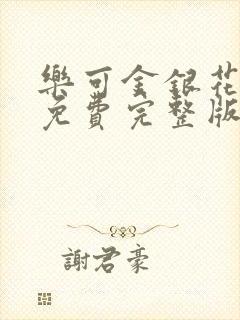 樂可金銀花
免費完整版
謝君豪